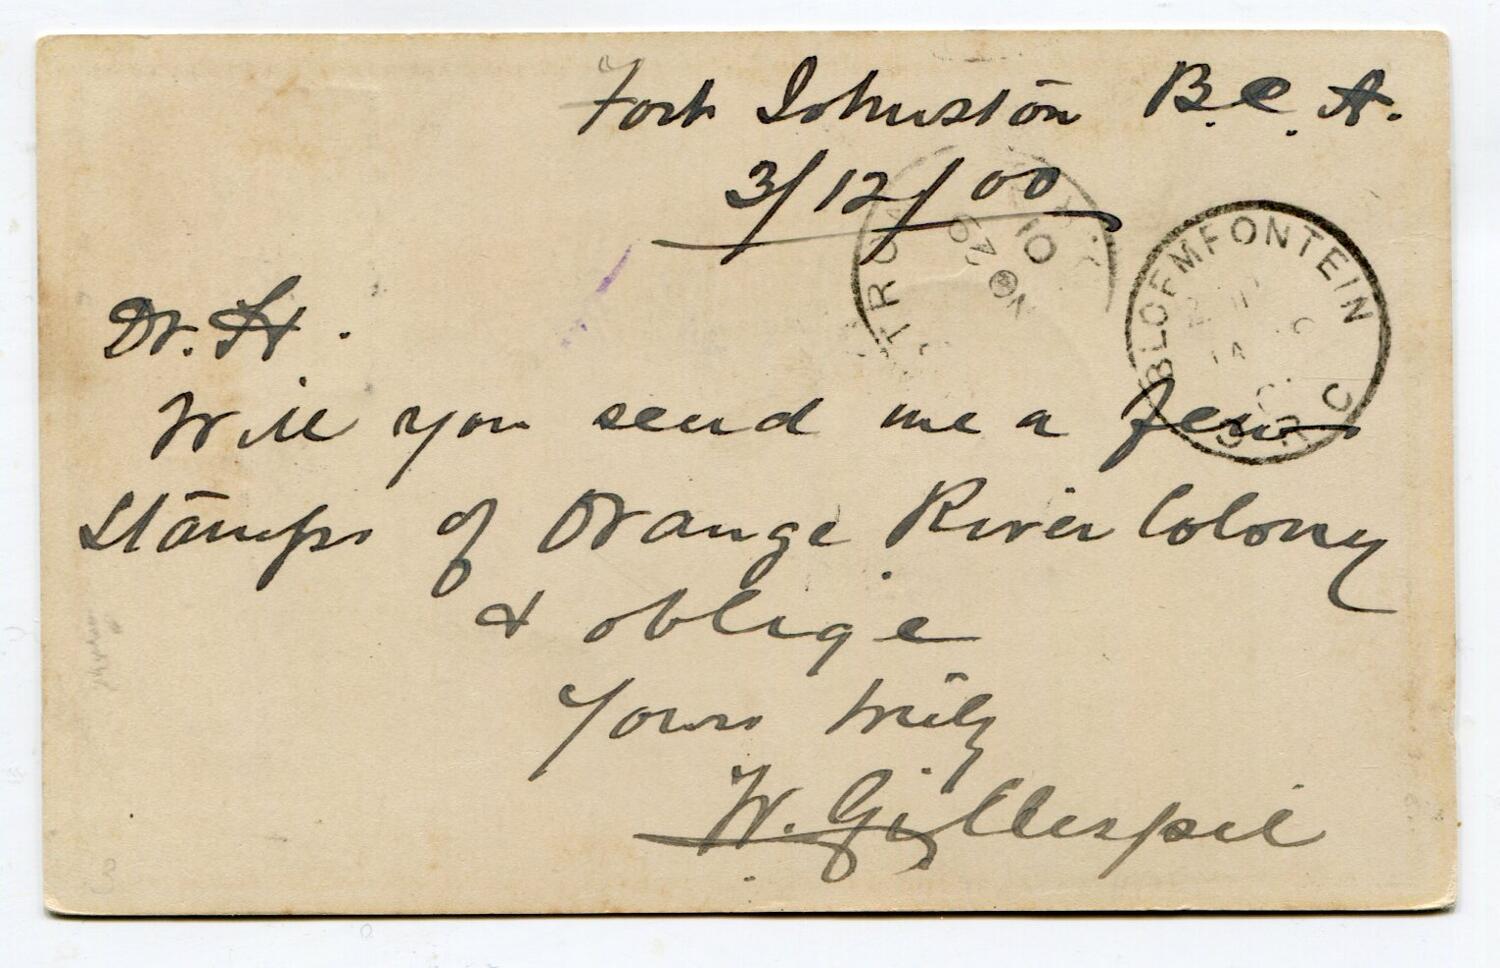 Fort Johnston B.C.A.
3/12/00
Dr. H.
Will you send me a few
stamps of Orange River Colony
& oblige
Yours truly
W. Gillespie
BLOEMFONTEIN